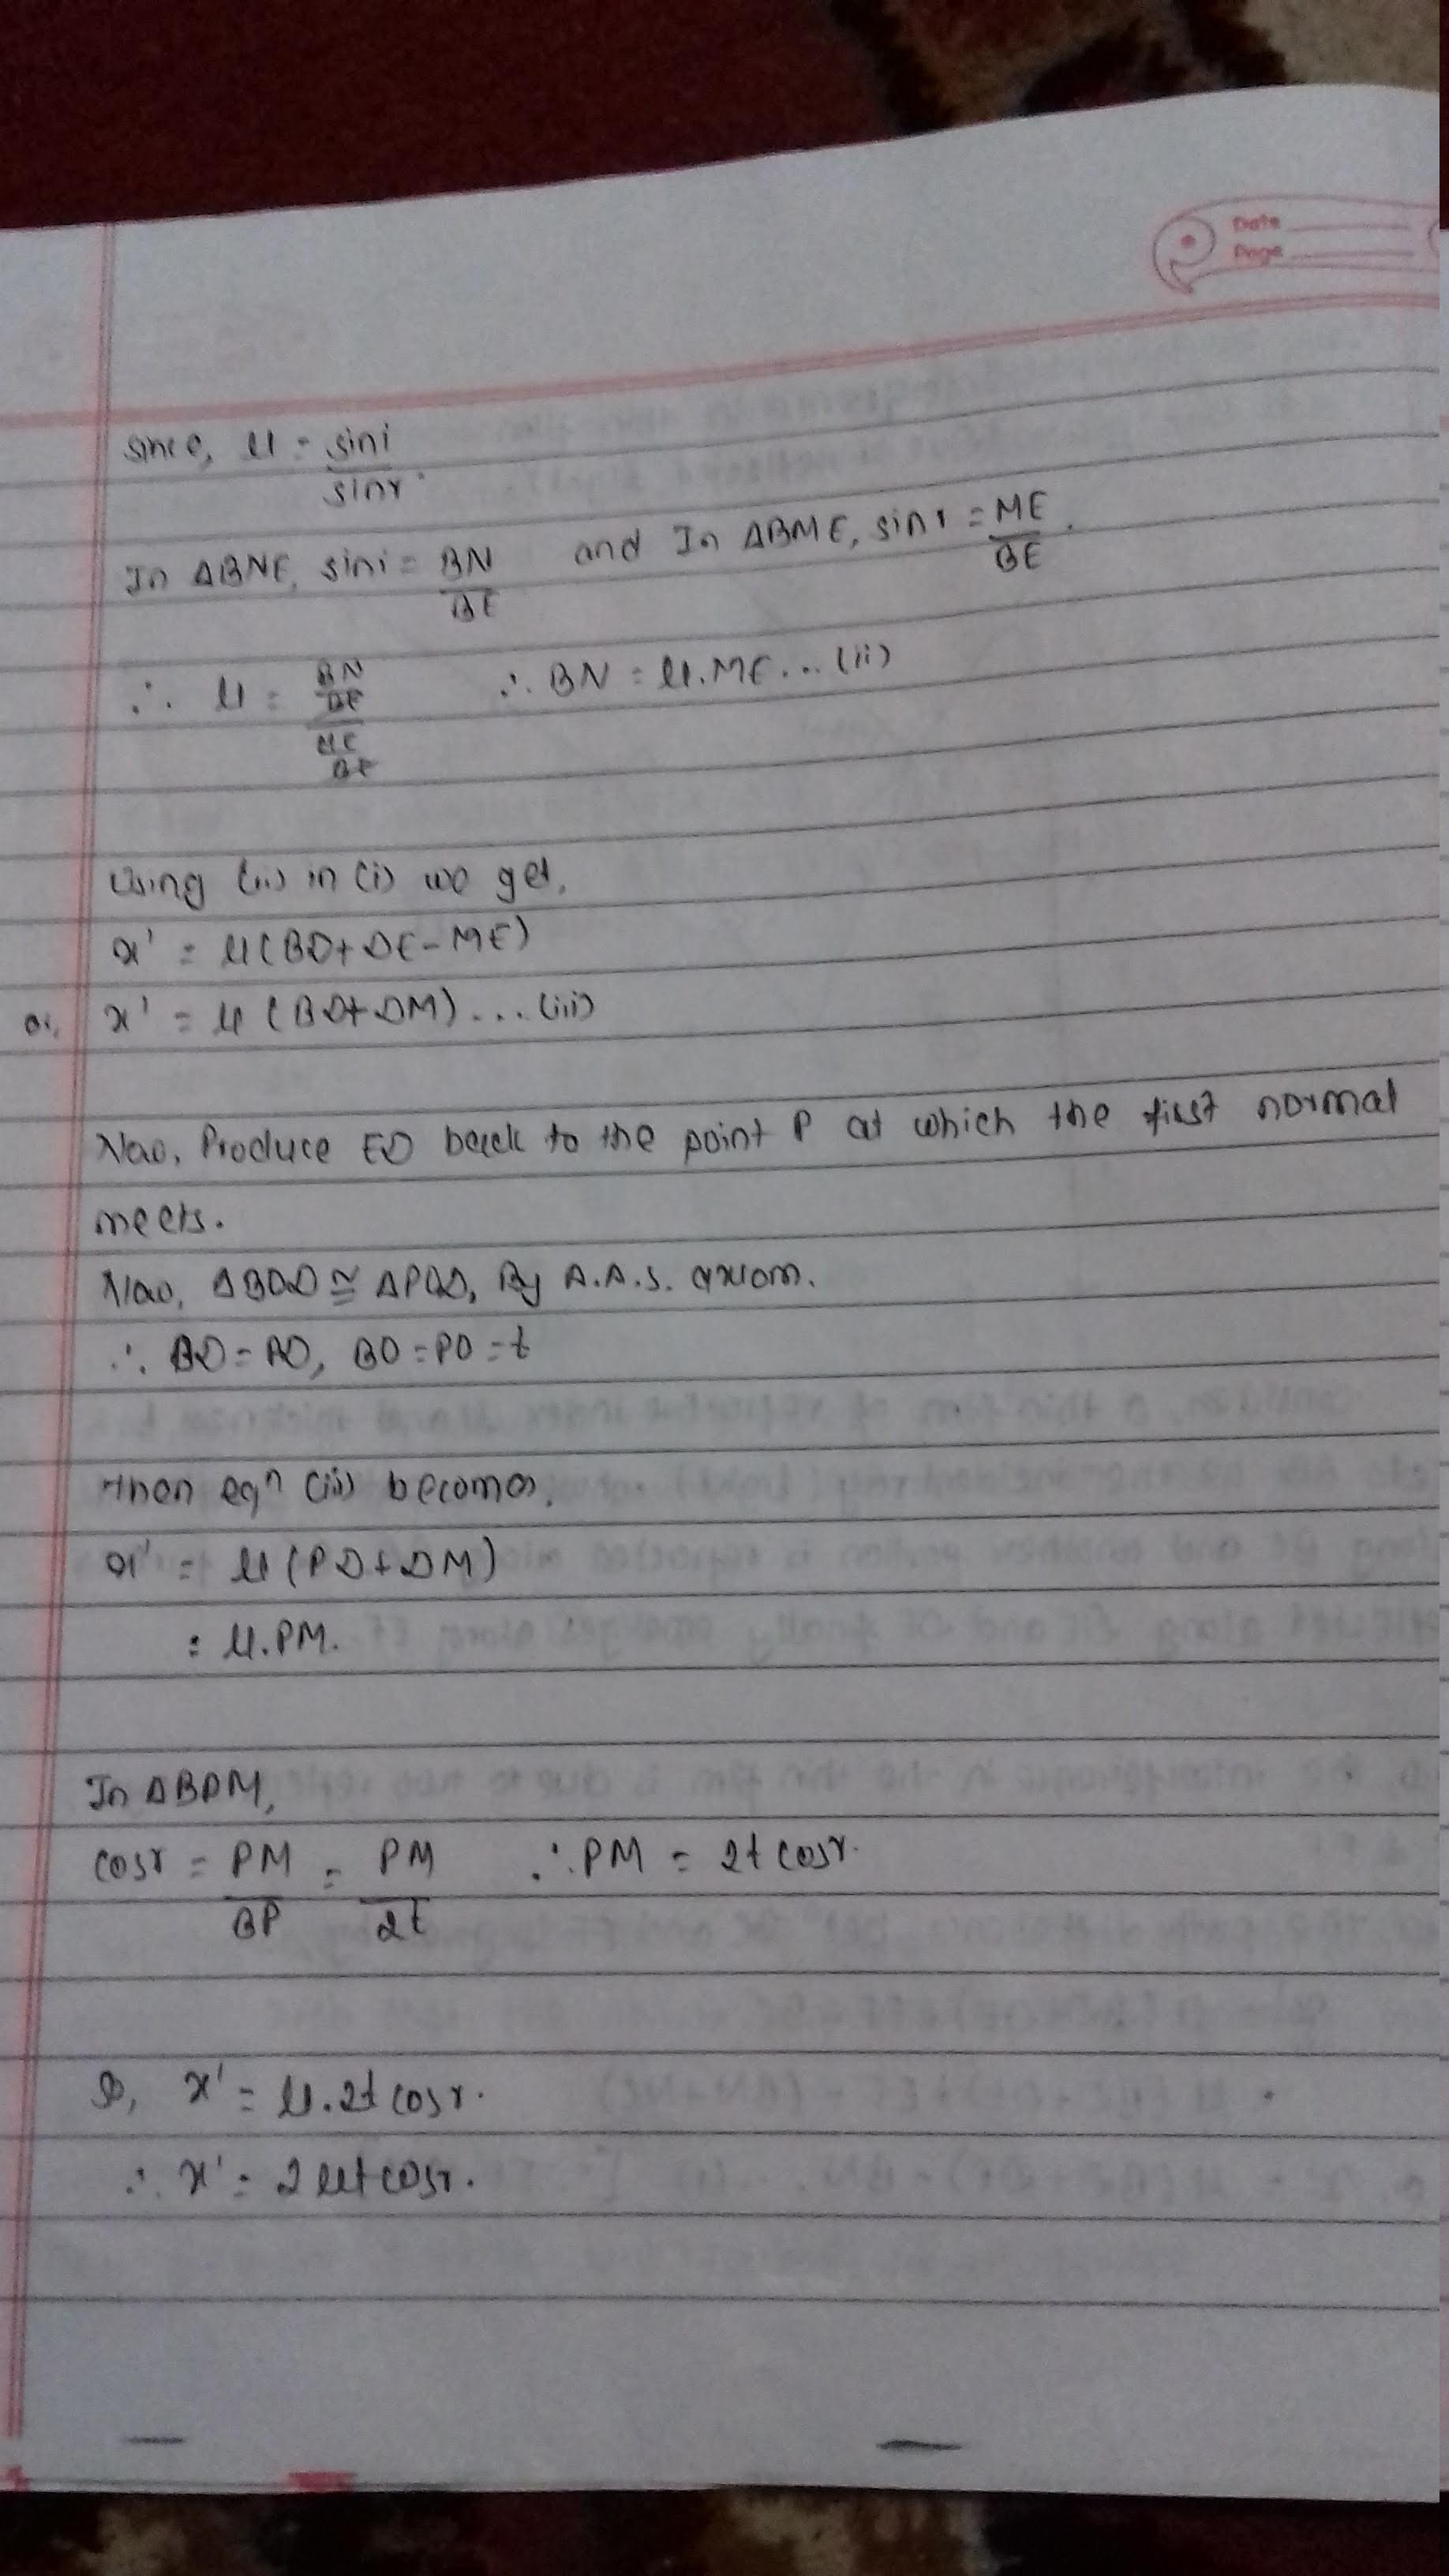 Date
Page
since, μ = sini / sinr.
In ΔBNE, sini = BN / BE and In ΔBME, sinr = ME / BE.
∴ μ = BN/BE / ME/BE ∴ BN = μ.ME... (ii)
Using (ii) in (i) we get,
x' = μ(BD+DE-ME)
or, x' = μ(BD+DM)... (iii)
Now, Produce ED back to the point P at which the first normal
meets.
Now, ΔBOD ≅ ΔPOD, By A.A.S. axiom.
∴ BD = PD, BO = PO = t
then eqn (iii) becomes,
x' = μ(PD+DM)
= μ.PM.
In ΔBPM,
cosr = PM / BP = PM / 2t ∴ PM = 2t cosr.
So, x' = μ.2t cosr.
∴ x' = 2μt cosr.